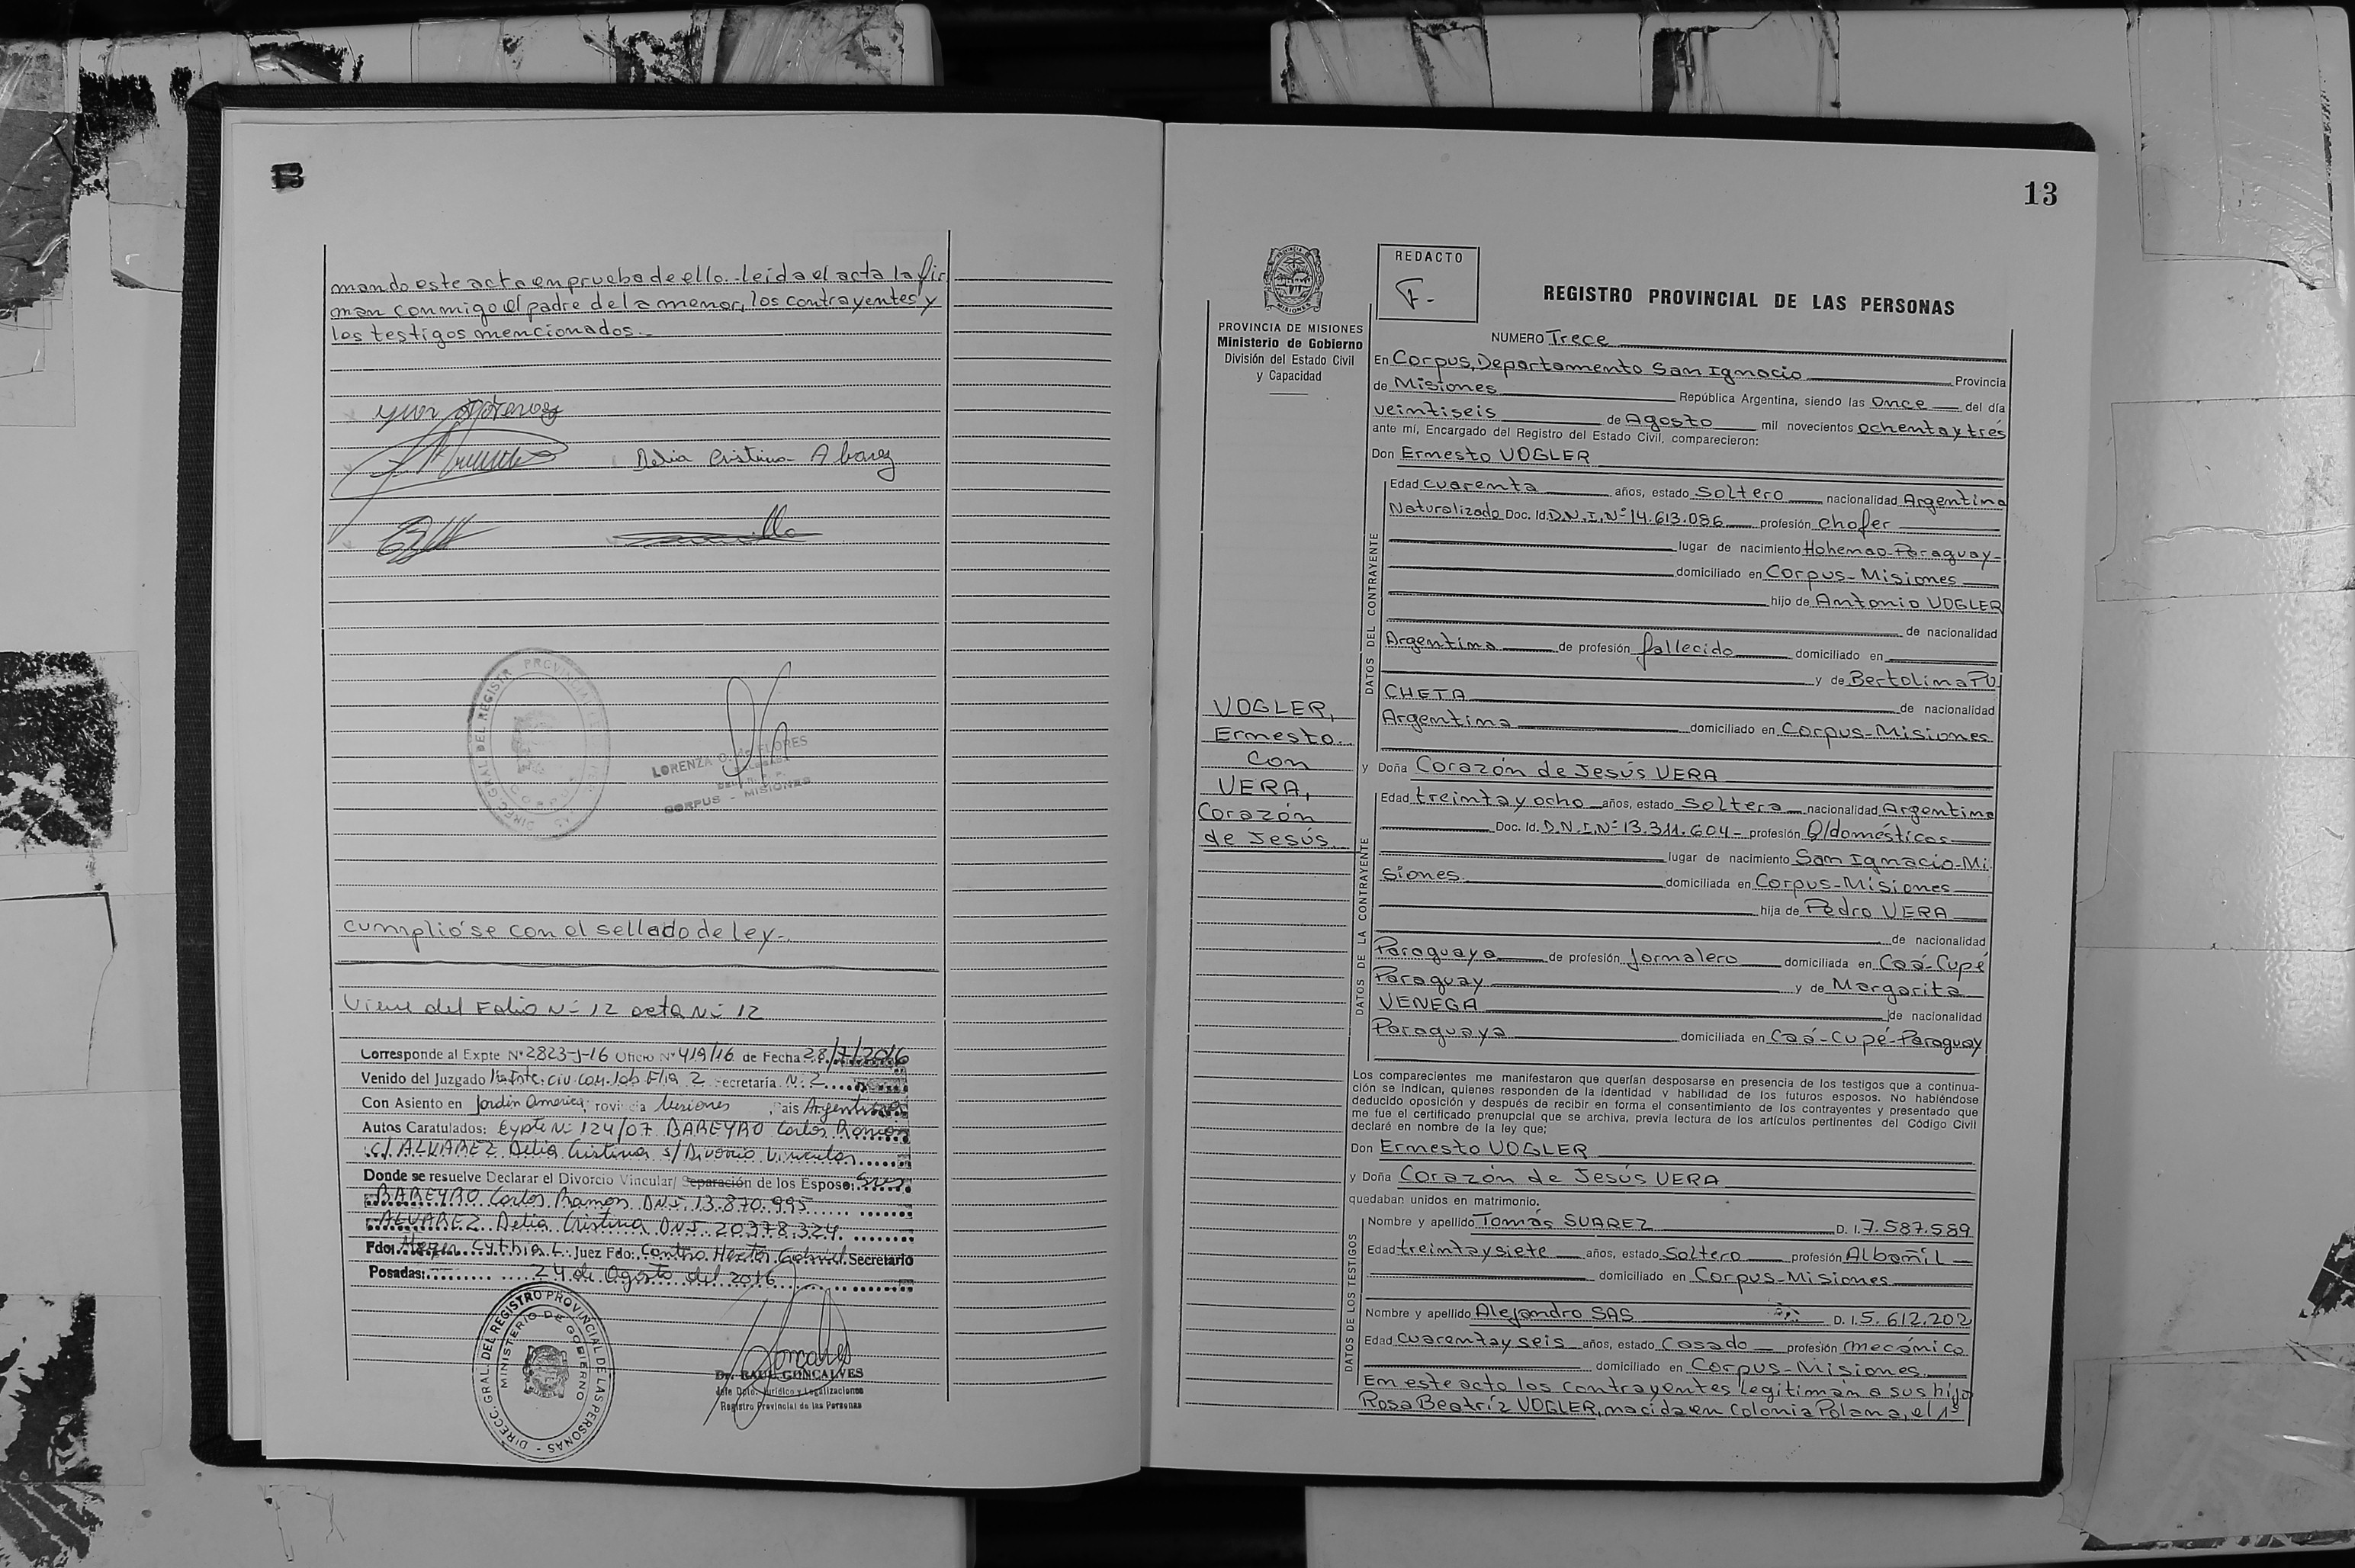 13
mando este acta en prueba de ello.-leida el acta la fir
man conmigo el padre de la menor, los contrayentes y
los testigos mencionados.-
Delia Cristina Alvarez
DIREC. GRAL. DEL REGISTR PROVINCIAL
CORPUS
LORENZA FLORES
CORPUS - MISIONES
cumplióse con el sellado de ley.-
Viene del Folio Nº 12 acta Nº 12
Corresponde al Expte Nº 2823-J-16 Oficio Nº 419/16 de Fecha 28/7/2016
Venido del Juzgado 1ra Inte. Civ. Com. Lab. Flia 2 Secretaría Nº 2
Con Asiento en Jardín America, Provincia Misiones, País Argentina
Autos Caratulados: Expte Nº 124/07 BAREYRO Carlos Ramon
C/ ALVAREZ Delia Cristina s/ Divorcio Vincular
Donde se resuelve Declarar el Divorcio Vincular/ Separación de los Esposos
BAREYRO Carlos Ramon D.N.I. 13.870.995
ALVAREZ Delia Cristina D.N.I. 20.378.324
Fdo: Cythia L. Juez Fdo: Hector Gabriel Secretario
Posadas: 24 de Agosto del 2016
DIRECC. GRAL. DEL REGISTRO PROVINCIAL DE LAS PERSONAS
MINISTERIO DE GOBIERNO
Dr. RAUL GONCALVES
Jefe Dpto. Jurídico y Legalizaciones
Registro Provincial de las Personas
13
PROVINCIA DE MISIONES
Ministerio de Gobierno
División del Estado Civil
y Capacidad
REDACTO
F.-
REGISTRO PROVINCIAL DE LAS PERSONAS
NUMERO Trece
En Corpus, Departamento San Ignacio Provincia
de Misiones República Argentina, siendo las once del día
veintiseis de Agosto mil novecientos ochenta y tres
ante mí, Encargado del Registro del Estado Civil, comparecieron:
Don Ernesto VOGLER
DATOS DEL CONTRAYENTE
Edad cuarenta años, estado soltero nacionalidad Argentina
Naturalizado Doc. Id. D.N.I. Nº 14.613.086 profesión chofer
lugar de nacimiento Hohenao-Paraguay-
domiciliado en Corpus-Misiones
hijo de Antonio VOGLER
de nacionalidad
Argentina de profesión fallecido domiciliado en
y de Bertolina PU
CHETA de nacionalidad
Argentina domiciliado en Corpus-Misiones
VOGLER,
Ernesto
con
VERA,
Corazón
de Jesús
y Doña Corazón de Jesús VERA
DATOS DE LA CONTRAYENTE
Edad treinta y ocho años, estado soltera nacionalidad Argentina
Doc. Id. D.N.I. Nº 13.311.604- profesión Q/domésticos
lugar de nacimiento San Ignacio-Mi
siones domiciliada en Corpus-Misiones
hija de Pedro VERA
de nacionalidad
Paraguaya de profesión Jornalero domiciliada en Caá-Cupé
Paraguay y de Margarita
VENEGA de nacionalidad
Paraguaya domiciliada en Caá-Cupé-Paraguay
Los comparecientes me manifestaron que querían desposarse en presencia de los testigos que a continua-
ción se indican, quienes responden de la identidad y habilidad de los futuros esposos. No habiéndose
deducido oposición y después de recibir en forma el consentimiento de los contrayentes y presentado que
me fue el certificado prenupcial que se archiva, previa lectura de los artículos pertinentes del Código Civil
declaré en nombre de la ley que;
Don Ernesto VOGLER
y Doña Corazón de Jesús VERA
quedaban unidos en matrimonio.
DATOS DE LOS TESTIGOS
Nombre y apellido Tomás SUAREZ D. I. 7.587.589
Edad treinta y siete años, estado soltero profesión Albañil
domiciliado en Corpus-Misiones
Nombre y apellido Alejandro SAS D. I. 5.612.202
Edad cuarenta y seis años, estado casado profesión mecánico
domiciliado en Corpus-Misiones
En este acto los contrayentes legitiman a sus hijo
Rosa Beatríz VOGLER, nacida en Colonia Polana, el 1º